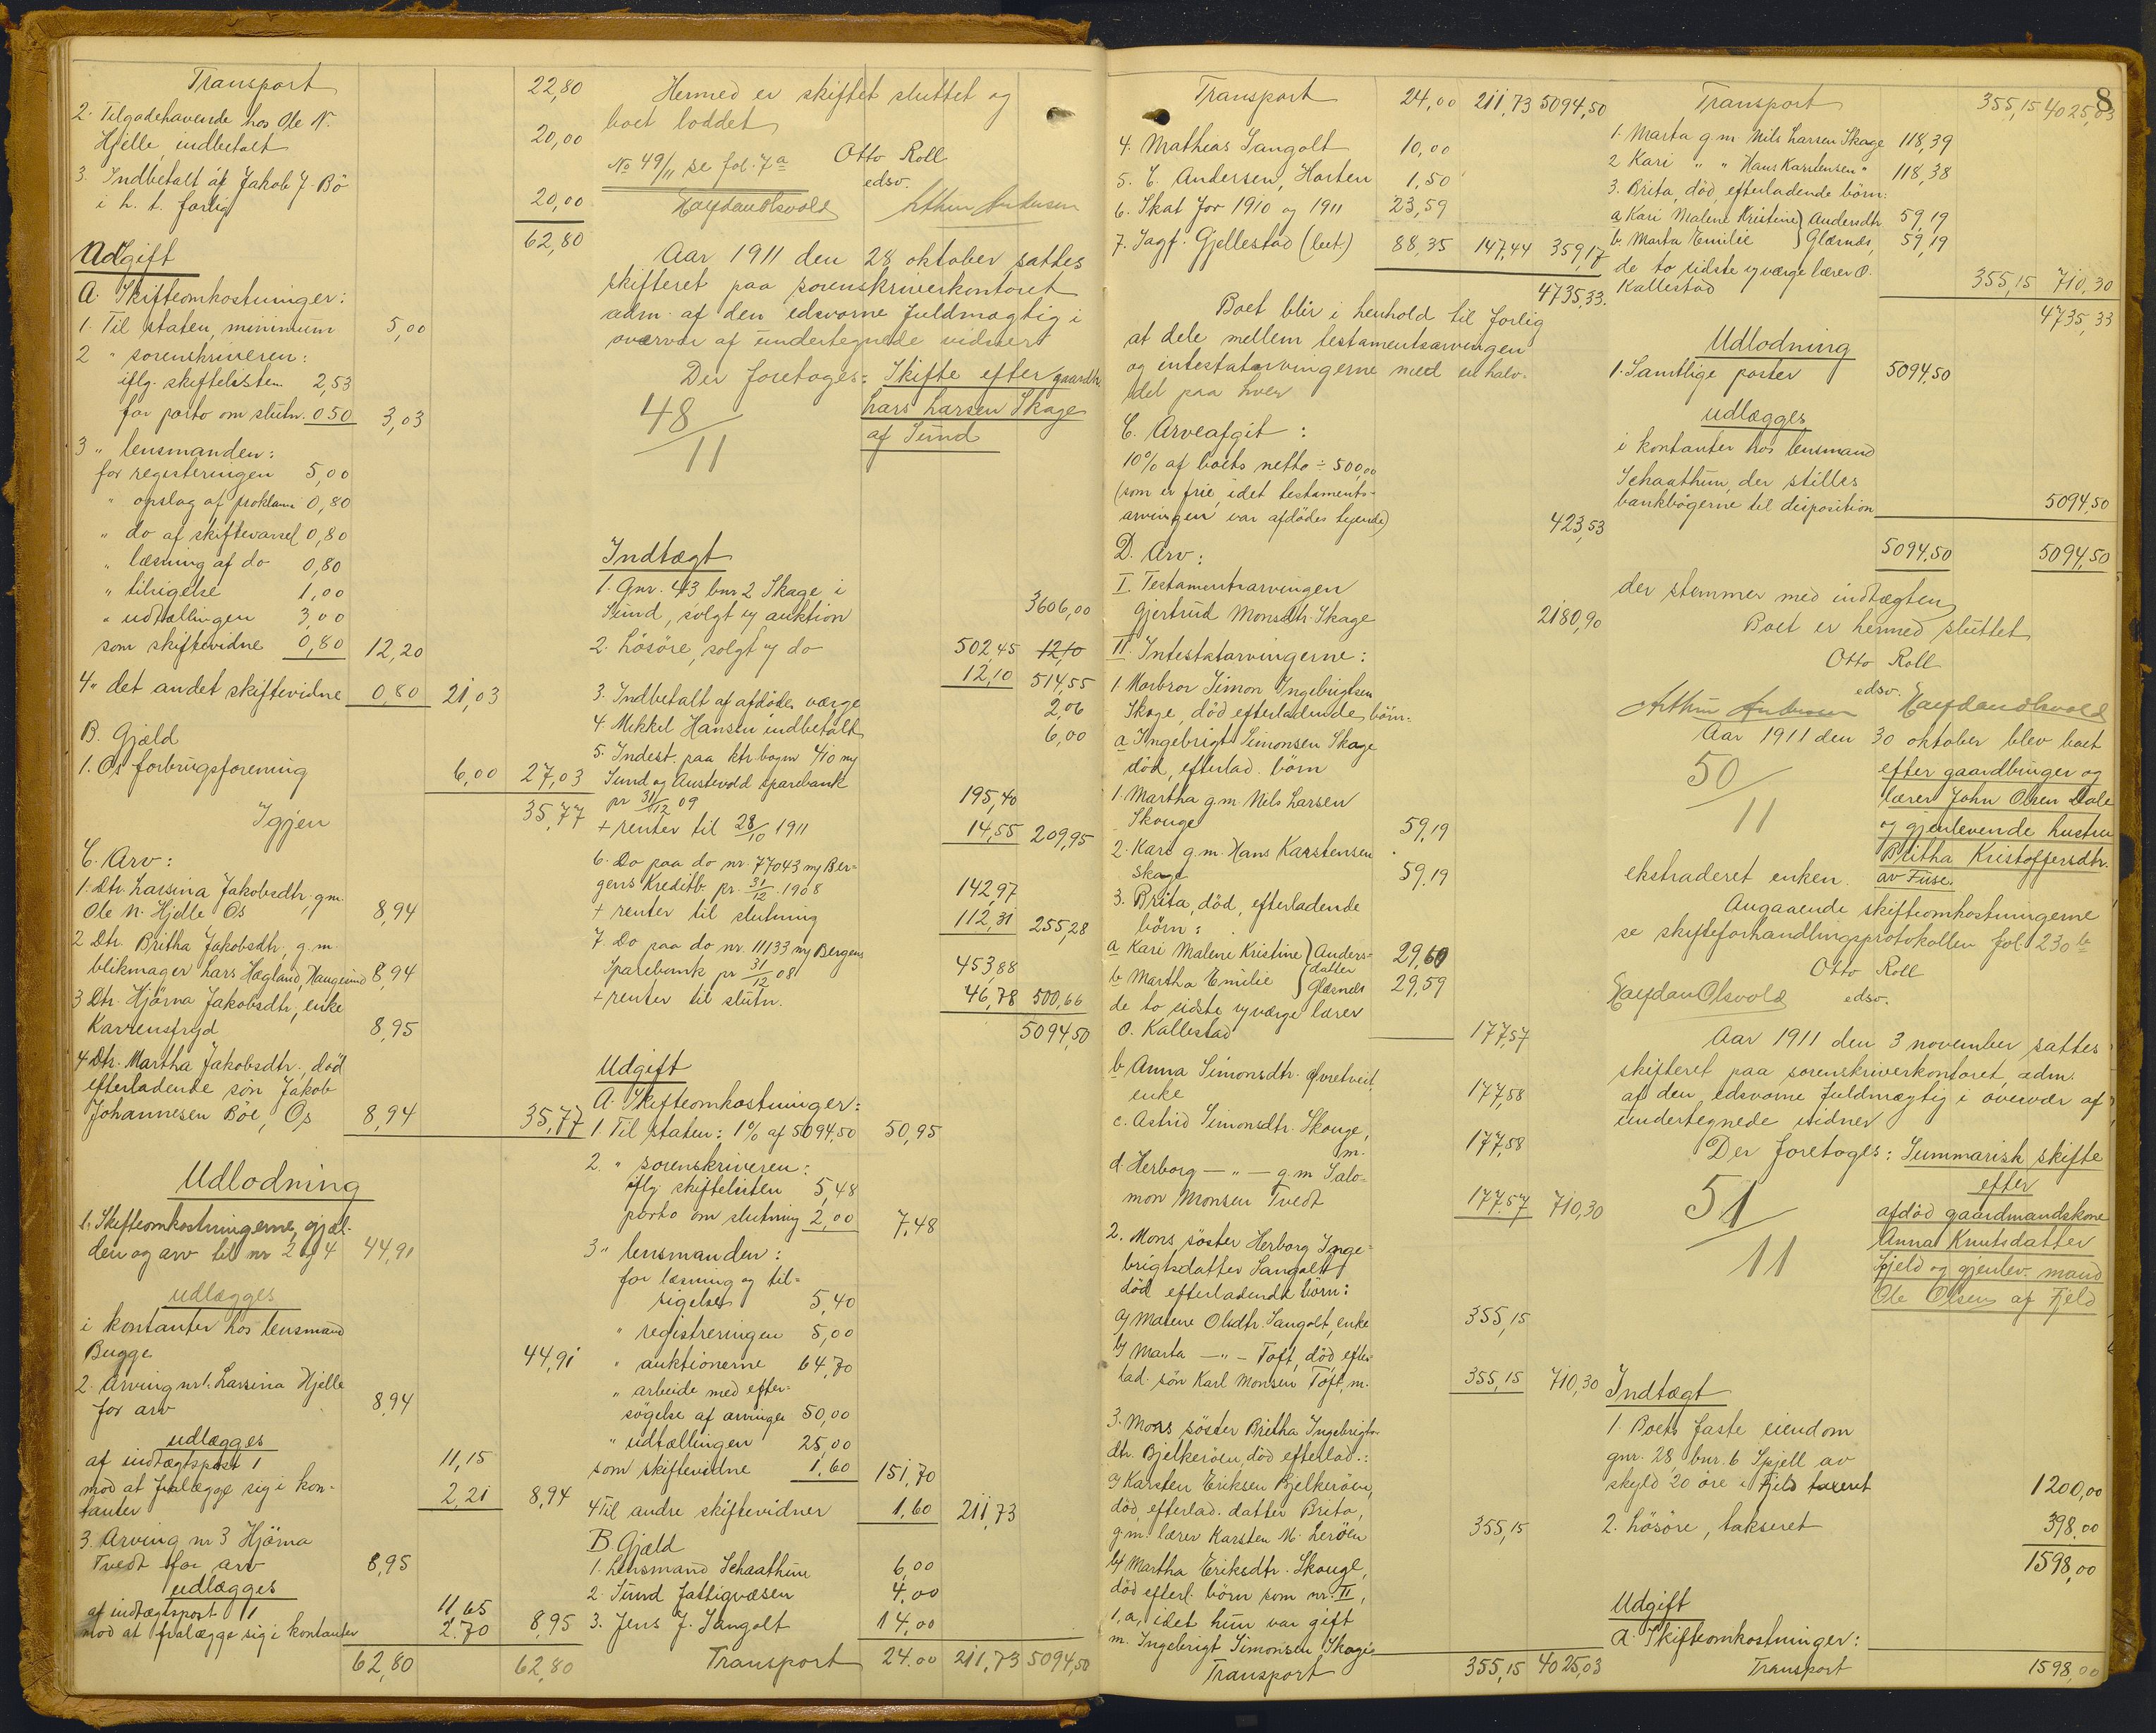 Transport 22,80
2. Tilgodehavende hos Ole N.
Hjelle indbetalt 20,00
3. Indbetalt af Jakob J. Bö
i h. t. forlig 20,00
62,80
Udgift
A. Skifteomkostninger:
1. Til staten, minimum 5,00
2 " sorenskriveren:
iflg. skiftelisten 2,53
for porto om slutn. 0 50 3,03
3 " lensmanden:
for registeringen 5,00
" opslag af proklama 0,80
" do af skiftevarsel 0,80
" læsning af do 0,80
" tilsigelse 1,00
" udtællingen 3,00
som skiftevidne 0,80 12,20
4 " det andet skiftevidne 0,80 21,03
B. Gjæld
1. Os forbrugsforening 6,00 27,03
Igjen 35,77
C. Arv:
1. Dtr. Larsina Jakobsdtr. g.m.
Ole N. Hjelle Os 8,94
2 Dtr. Britha Jakobsdtr, g.m.
blikmager Lars Hægland, Haugesund 8,94
3 Dtr. Hjörna Jakobsdtr, enke
8,95
4 Dtr. Martha Jakobsdtr., död
efterladende sön Jakob
Johannesen Böe, Os 8,94 35,77
Udlodning
1. Skifteomkostningerne, gjæl-
den og arv til nr 2 og 4 44,91
udlægges
i kontanter hos lensmand
Bugge 44,91
2. Arving nr 1. Larsina Hjelle
for arv 8,94
udlægges
af indtægtspost 1 11,15
mod at fralægge sig i kon-
tanter 2,21 8,94
3. Arving nr 3 Hjörna
Tvedt for arv 8,95
udlægges
af indtægtspost 1 11 65
mod at fralægge sig i kontanter 2.70 8,95
62,80 62,80
Hermed er skiftet sluttet og
boet loddet
Otto Roll
No 49/11 se fol. 7a edsv.
Halfdan Olsvold Arthur Andersen
Aar 1911 den 28 oktober sattes
skifteret paa sorenskriverkontoret
adm. af den edsvorne fuldmægtig i
overvær af undertegnede vidner
Der foretoges: Skifte efter gaardbr
48/11 Lars Larsen Skage
af Sund
Indtægt
1. Gnr. 43 bnr 2 Skage i
Sund, solgt v/ auktion 3606,00
2. Lösöre, solgt v/ do 502,45 12,10
12,10 514,55
3. Indbetalt af afdödes værge 2,06
4. Mikkel Hansen indbetalt 6,00
5. Indest. paa ktr. bogen 410 m/
Sund og Austevold sparebank
pr 31/12 09 195,40
+ renter til 28/10 1911 14,55 209,95
6. Do paa do nr. 77043 m/ Ber-
gens Kreditb. pr. 31/12 1908 142,97
+ renter til slutning 112,31 255,28
7. Do paa do nr. 11133 m/ Bergens
Sparebank pr 31/12 08 453,88
+ renter til slutn. 46,78 500,66
5094,50
Udgift
A. Skifteomkostninger:
1 Til staten: 1% af 5094,50 50,95
2. " sorenskriveren:
iflg. skiftelisten 5,48
porto om slutning 2,00 7,48
3 " lensmanden:
for læsning og til-
sigelser 5,40
" registreringen 5,00
" auktionerne 64,70
" arbeide med efter-
søgelse af arvinger 50,00
" udtællingen 25,00
som skiftevidne 1,60 151,70
4 Til andre skiftevidner 1,60 211,73
B. Gjæld
1. Lensmand Schaathun 6,00
2. Sund fattigvæsen 4,00
3. Jens J. Sangolt 14,00
Transport 24.00 211,73 5094,50
Transport 24,00 211,73 5094,50
4. Mathias Sangolt 10,00
5. C. Andersen, Horten 1,50
6. Skat for 1910 og 1911 23,59
7. Sagf. Gjellestad (bet.) 88,35 147,44 359,17
4735,33.
Boet blir i henhold til forlig
at dele mellem testamentsarvingen
og intestatarvingerne med en halv-
del paa hver
C. Arveafgift:
10% af boets netto ÷ 500,00
(som er frie, idet testaments-
arvingen var afdödes tyende) 423,53
D. Arv:
I. Testamentsarvingen
Gjertrud Monsdtr. Skage 2180,90
II. Intestatarvingerne:
1. Morbror Simon Ingebrigtsen
Skage, död efterladende börn:
a Ingebrigt Simonsen Skage
död, efterlad. börn
1. Martha g.m. Nils Larsen
Skauge 59,19
2. Kari g.m. Hans Karstensen
Skage 59,19
3. Brita, död, efterladende
börn:
a Kari Malene Kristine } Anders- 29,60
b Martha Emilie } datter Glæsnes 29,59
de to sidste v/ værge lærer
O. Kallestad 177,57
b Anna Simonsdtr. Övretveit
enke 177,58
c. Astrid Simonsdtr. Skauge,
m. 177,58
d. Herborg — " — g.m Salo-
mon Monsen Tvedt 177,57 710,30
2. Mors söster Herborg Inge-
brigtsdatter Sangolt
död efterladende börn:
a/ Malene Olsdtr. Sangolt, enke 355,15
b/ Marta — " — Toft, död, efter-
lad. sön Karl Monsen Toft, m. 355,15 710,30
3. Mors söster Britha Ingebrigts-
dtr. Bjelkeröen, död efterlad.:
a/ Karsten Eriksen Bjelkeröen,
död, efterlad. datter Brita,
g.m. lærer Karsten M. Leröen 355,15
b/ Martha Eriksdtr. Skauge,
död efterl. börn som nr. II,
1, a, idet hun var gift
m. Ingebrigt Simonsen Skage
Transport 355,15 4025,03
8
Transport 355,15 4025,03
1. Marta g m Nils Larsen Skage 118,39
2 Kari " " Hans Karstensen " 118,38
3. Brita, död, efterladende börn:
a Kari Malene Kristine } Andersdtr 59,19
b. Marta Emilie } Glæsnes, 59,19
de to sidste v/ værge lærer O.
Kallestad 355,15 710,30
4735,33
Udlodning
1. Samtlige poster 5094,50
udlægges
i kontanter hos lensmand
Schaathun, der stilles
bankbögerne til disposition 5094,50
5094,50 5094,50
der stemmer med indtægten
Boet er hermed sluttet
Otto Roll
edsv.
Arthur Andersen Halfdan Olsvold
Aar 1911 den 30 oktober blev boet
50/11 efter gaardbruger og
lærer John Olsen Dale
og gjenlevende hustru
Britha Kristoffersdtr.
ekstraderet enken. av Fuse.
Angaaende skifteomkostningerne
se skifteforhandlingsprotokollen fol 230 b
Otto Roll
Halfdan Olsvold edsv.
Aar 1911 den 3 november sattes
skifteret paa sorenskriverkontoret, adm.
af den edsvorne fuldmægtig i overvær af
undertegnede vidner
Der foretoges: Summarisk skifte
efter
51/11 afdöd gaardmandskone
Anna Knutsdatter
Spjeld og gjenlev. mand
Ole Olsen af Fjeld
Indtægt
1. Boets faste eiendom
gnr. 28, bnr. 6 Spjell av
skyld 20 öre i Fjeld taxeret 1200,00
2. Lösöre, takseret 398,00
1598,00
Udgift
A. Skifteomkostninger:
Transport 1598,00